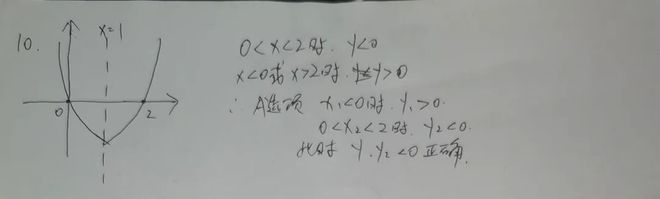 10.
x=1
0
2
0<x<2时. y<0
x<0或x>2时. y>0
∴ A选项 x₁<0时. y₁>0.
0<x₂<2时. y₂<0.
此时 y₁y₂<0 正确.